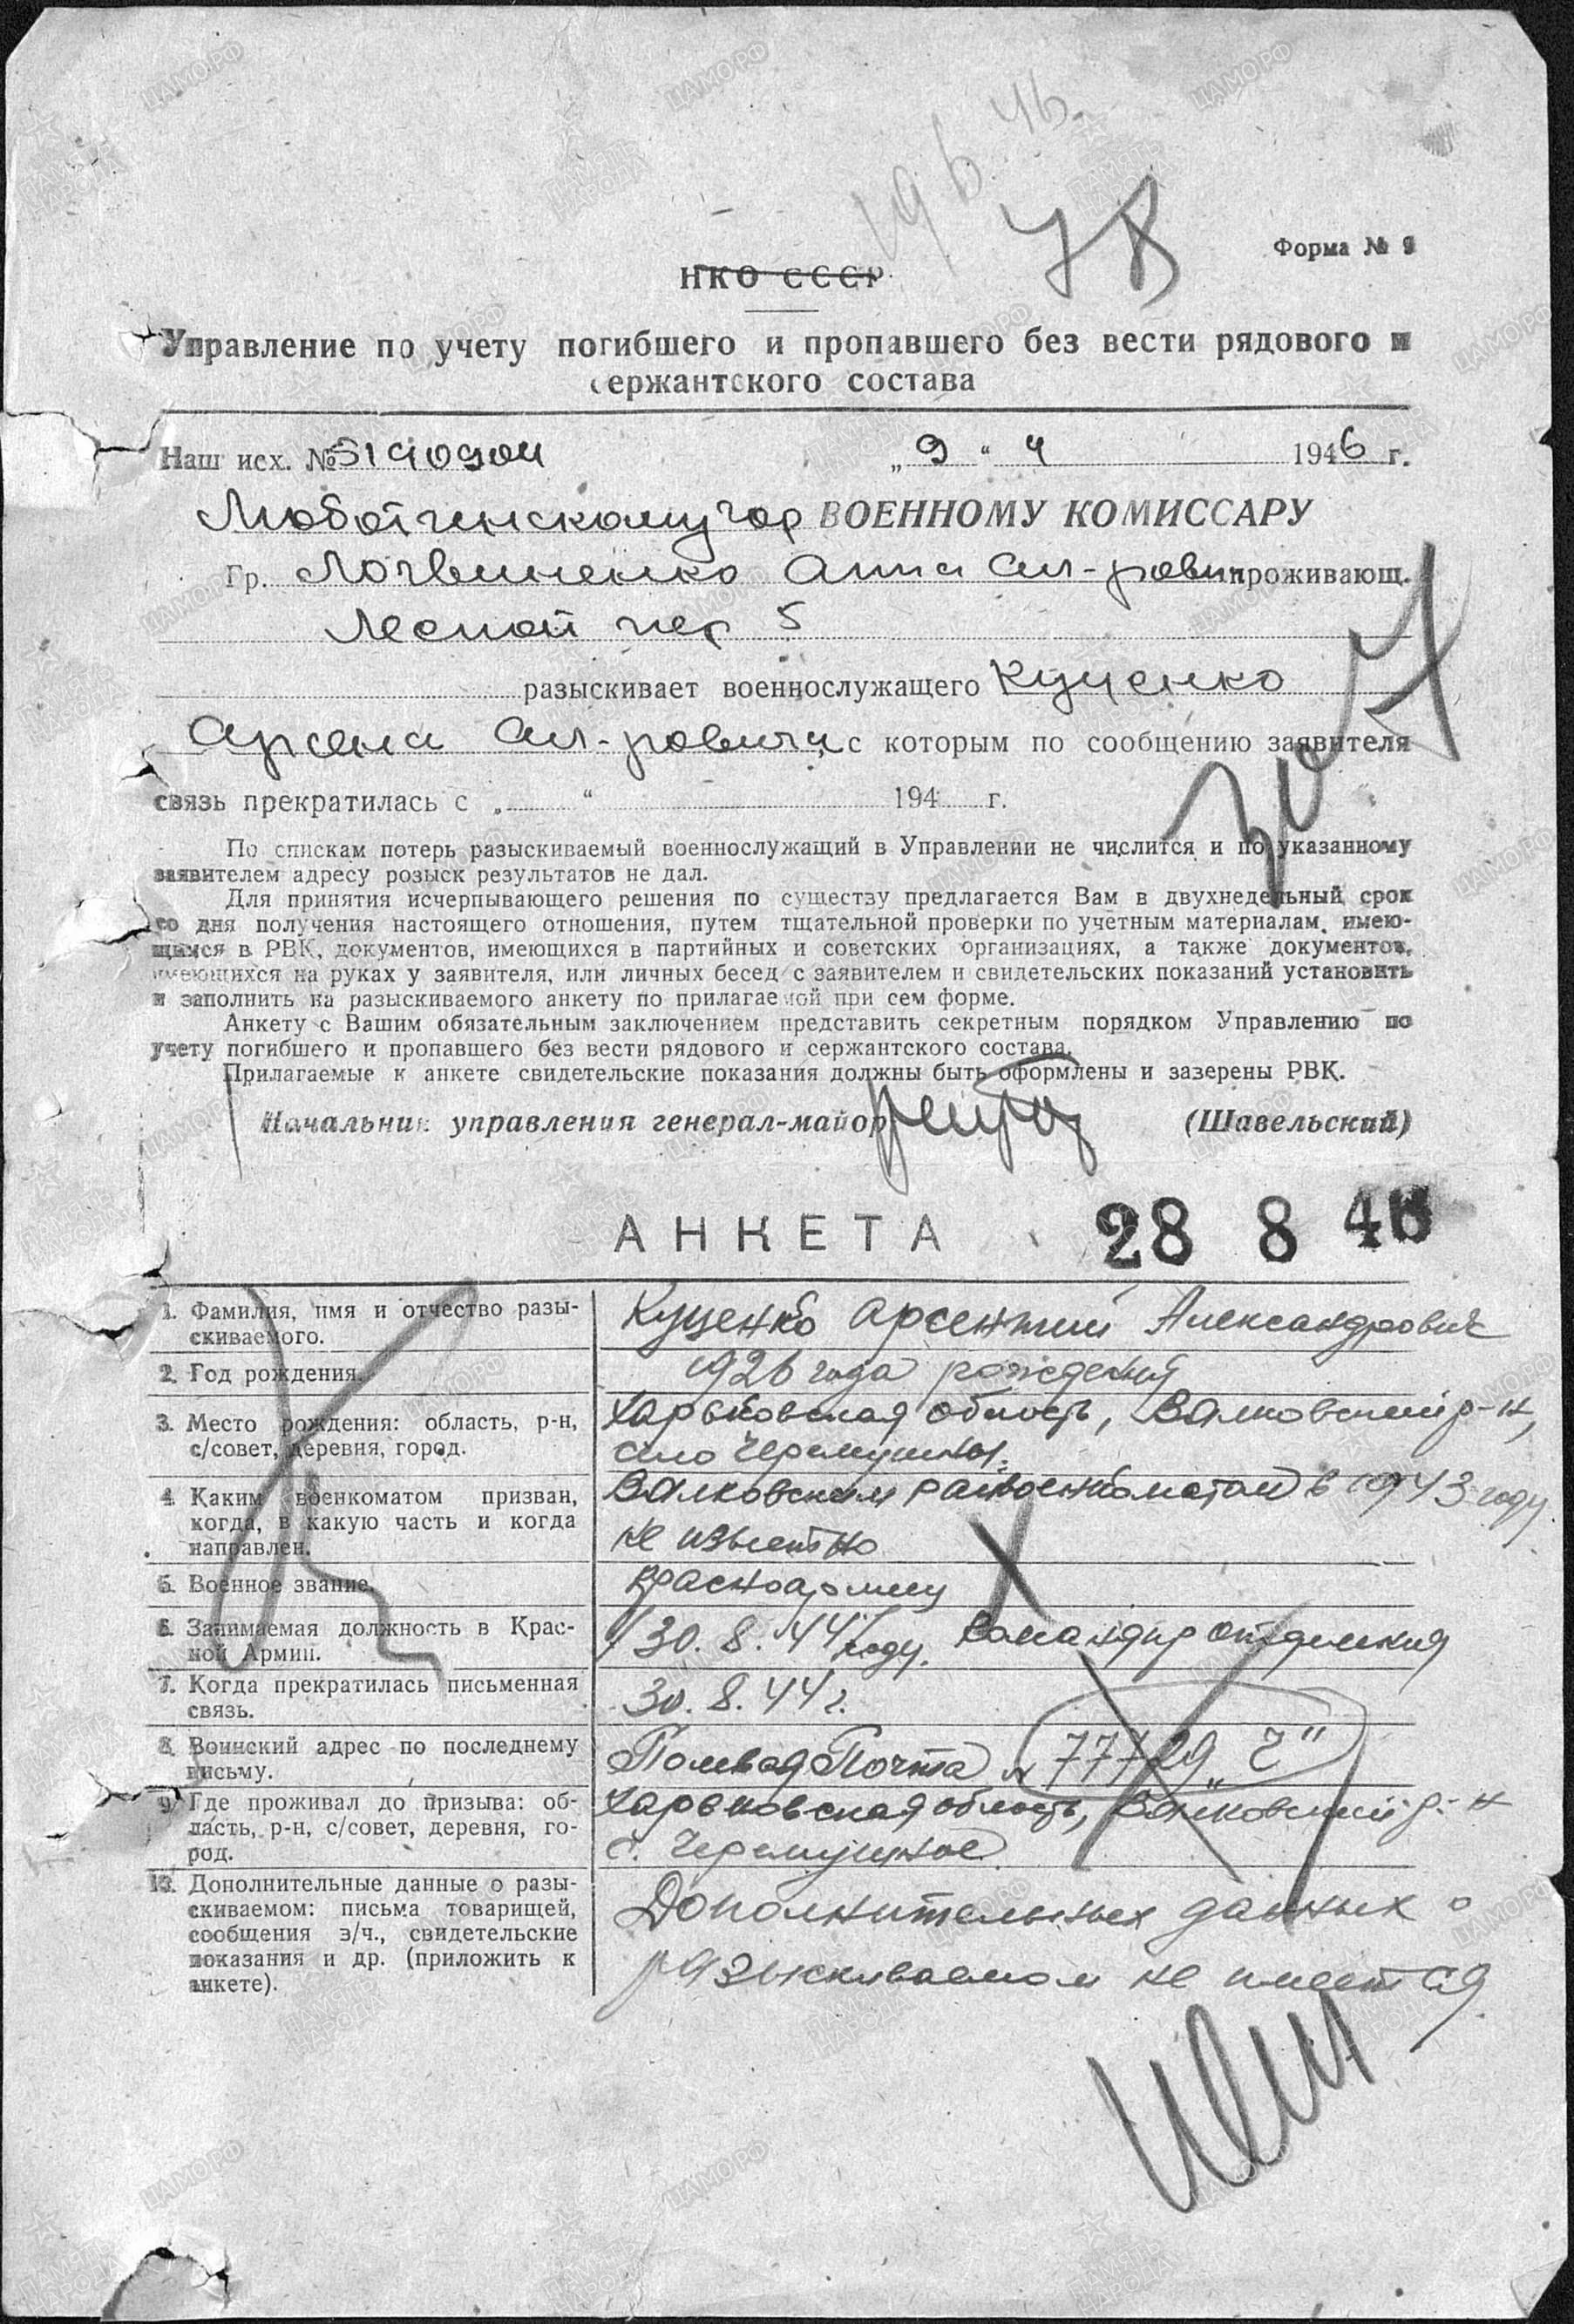 19 6 46.
78
Форма № 9
НКО СССР
Управление по учету погибшего и пропавшего без вести рядового и
сержантского состава
Наш исх. № 5190904 „9“ 4 1946 г.
Люботинскому гор ВОЕННОМУ КОМИССАРУ
Гр. Логвиненко Анна Ал-ровн проживающ.
Лесной пер 5
разыскивает военнослужащего Куценко
Арсена Ал-ровича, с которым по сообщению заявителя
связь прекратилась с „ “ 194 г.
По спискам потерь разыскиваемый военнослужащий в Управлении не числится и по указанному
заявителем адресу розыск результатов не дал.
Для принятия исчерпывающего решения по существу предлагается Вам в двухнедельный срок
со дня получения настоящего отношения, путем тщательной проверки по учетным материалам, имею-
щимся в РВК, документов, имеющихся в партийных и советских организациях, а также документов,
имеющихся на руках у заявителя, или личных бесед с заявителем и свидетельских показаний установить
и заполнить на разыскиваемого анкету по прилагаемой при сем форме.
Анкету с Вашим обязательным заключением представить секретным порядком Управлению по
учету погибшего и пропавшего без вести рядового и сержантского состава.
Прилагаемые к анкете свидетельские показания должны быть оформлены и зазерены РВК.
Начальник управления генерал-майор (Шавельский)
АНКЕТА 28 8 46
1. Фамилия, имя и отчество разы-
скиваемого.
Куценко Арсентий Александрович
2. Год рождения.
1926 года рождения
3. Место рождения: область, р-н,
с/совет, деревня, город.
Харьковская область, Валковский р-н,
село Черемушны.
4. Каким военкоматом призван,
когда, в какую часть и когда
направлен.
Валковским райвоенкоматом в 1943 году.
не известно
5. Военное звание.
Красноармеец
6. Занимаемая должность в Крас-
ной Армии.
/30.8.44 году. Командир отделения
7. Когда прекратилась письменная
связь.
30.8.44 г.
8. Воинский адрес по последнему
письму.
Полевая Почта № 77729 „Г“
9. Где проживал до призыва: об-
ласть, р-н, с/совет, деревня, го-
род.
Харьковская область, Валковский р-н
с. Черемушное
10. Дополнительные данные о разы-
скиваемом: письма товарищей,
сообщения з/ч., свидетельские
показания и др. (приложить к
анкете).
Дополнительных данных о
разыскиваемом не имеется